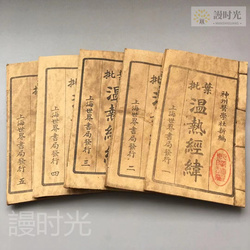 谩时光
神州醫學社新編
葉批
溫熱經緯
上海世界書局發行 一
批
溫熱經
上海世界書局發行 二
批
上海世界書局發行 三
批
上海世界書局發行 四
批
上海世界書局發行 五
谩时光
谩时光